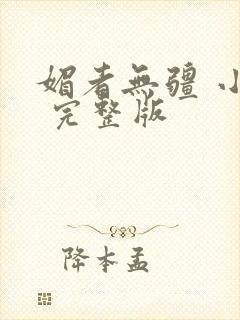 媚者無疆 小
完整版
降本孟